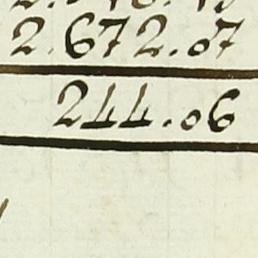 2.672.07
244.06